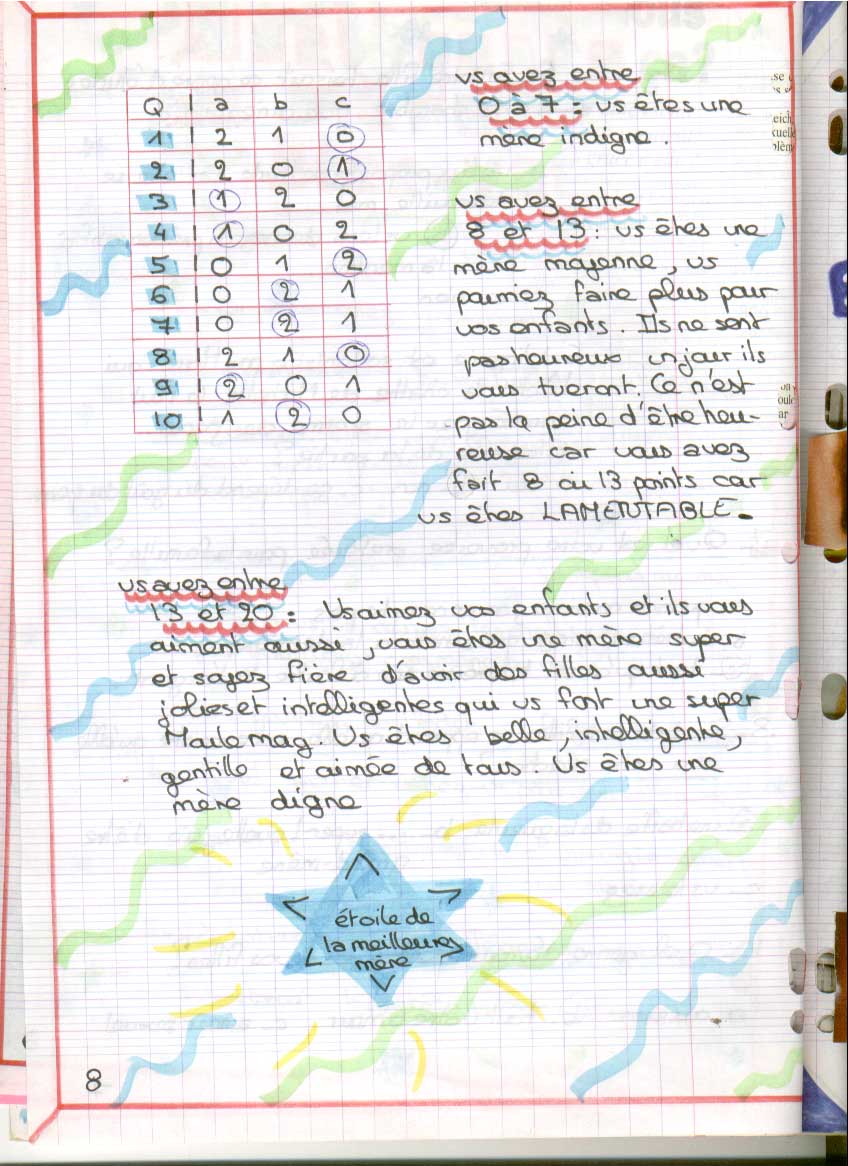 Q | a b c
1 | 2 1 0
2 | 2 0 1
3 | 1 2 0
4 | 1 0 2
5 | 0 1 2
6 | 0 2 1
7 | 0 2 1
8 | 2 1 0
9 | 2 0 1
10 | 1 2 0
vs avez entre
0 à 7 : vs êtes une
mère indigne.
vs avez entre
8 et 13 : vs êtes une
mère moyenne, vs
pourriez faire plus pour
vos enfants. Ils ne sont
pas heureux un jour ils
vous tueront. Ce n'est
pas la peine d'être heu-
reuse car vous avez
fait 8 ou 13 points car
vs êtes LAMENTABLE.
vs avez entre
13 et 20 : Vs aimez vos enfants et ils vous
aiment aussi, vous êtes une mère super
et soyez fière d'avoir des filles aussi
jolies et intelligentes qui vs font une super
mag. Vs êtes belle, intelligente,
gentille et aimée de tous. Vs êtes une
mère digne
étoile de
la meilleures
mère
8